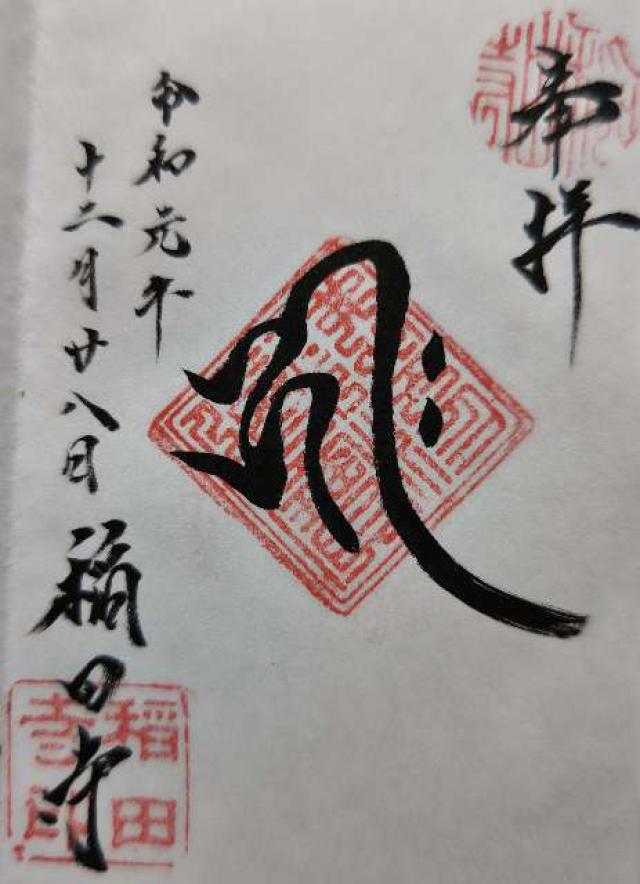 奉拝
令和元年
十二月廿八日
稲田寺
稲田
寺印